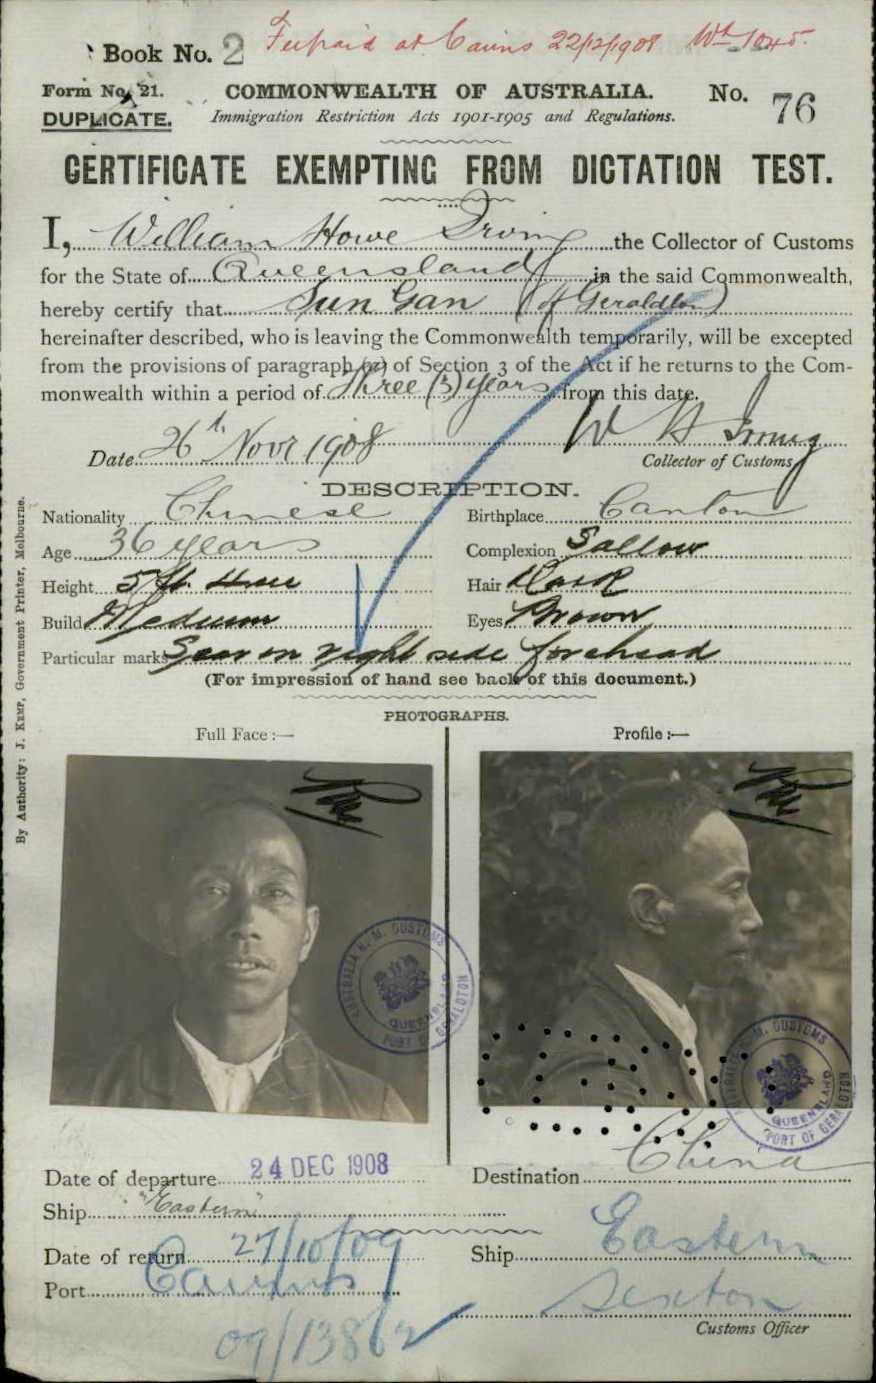 Book No. 2 Fee paid at Cairns 22/12/1908
Form No. 21. COMMONWEALTH OF AUSTRALIA. No. 76
DUPLICATE. Immigration Restriction Acts 1901-1905 and Regulations.
CERTIFICATE EXEMPTING FROM DICTATION TEST.
I, William Howe Irving the Collector of Customs
for the State of Queensland in the said Commonwealth,
hereby certify that Sun Gan (of Geraldton)
hereinafter described, who is leaving the Commonwealth temporarily, will be excepted
from the provisions of paragraph (a) of Section 3 of the Act if he returns to the Com-
monwealth within a period of three (3) years from this date.
Date 26th Novr 1908 W H Irving
Collector of Customs
DESCRIPTION.
Nationality Chinese Birthplace Canton
Age 36 years Complexion Sallow
Height 5 ft. three Hair Dark
Build Medium Eyes Brown
Particular marks Scar on right side forehead
(For impression of hand see back of this document.)
PHOTOGRAPHS.
Full Face :— Profile :—
AUSTRALIA H. M. CUSTOMS QUEENSLAND PORT OF GERALDTON
AUSTRALIA H. M. CUSTOMS QUEENSLAND PORT OF GERALDTON
Date of departure 24 DEC 1908 Destination China
Ship "Eastern"
Date of return 27/10/09 Ship Eastern
Port Cairns Sexton
09/13862 Customs Officer
By Authority: J. KEMP, Government Printer, Melbourne.